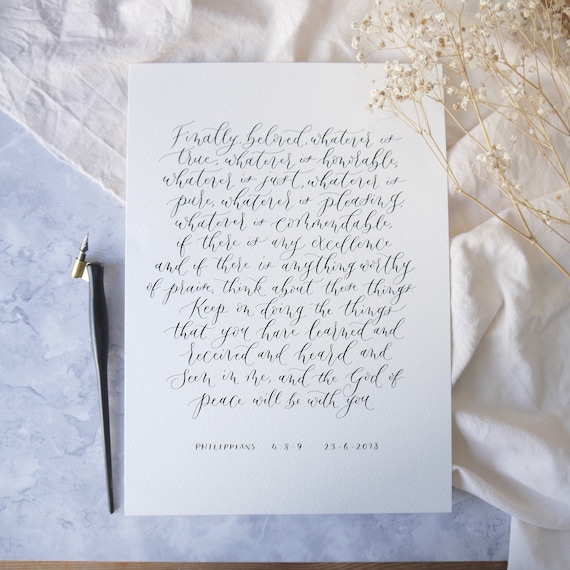 Finally, beloved, whatever is
true, whatever is honorable,
whatever is just, whatever is
pure, whatever is pleasing,
whatever is commendable,
if there is any excellence
and if there is anything worthy
of praise, think about these things
Keep on doing the things
that you have learned and
received and heard and
seen in me, and the God of
peace will be with you
PHILIPPIANS 4.8-9 23-6-2018